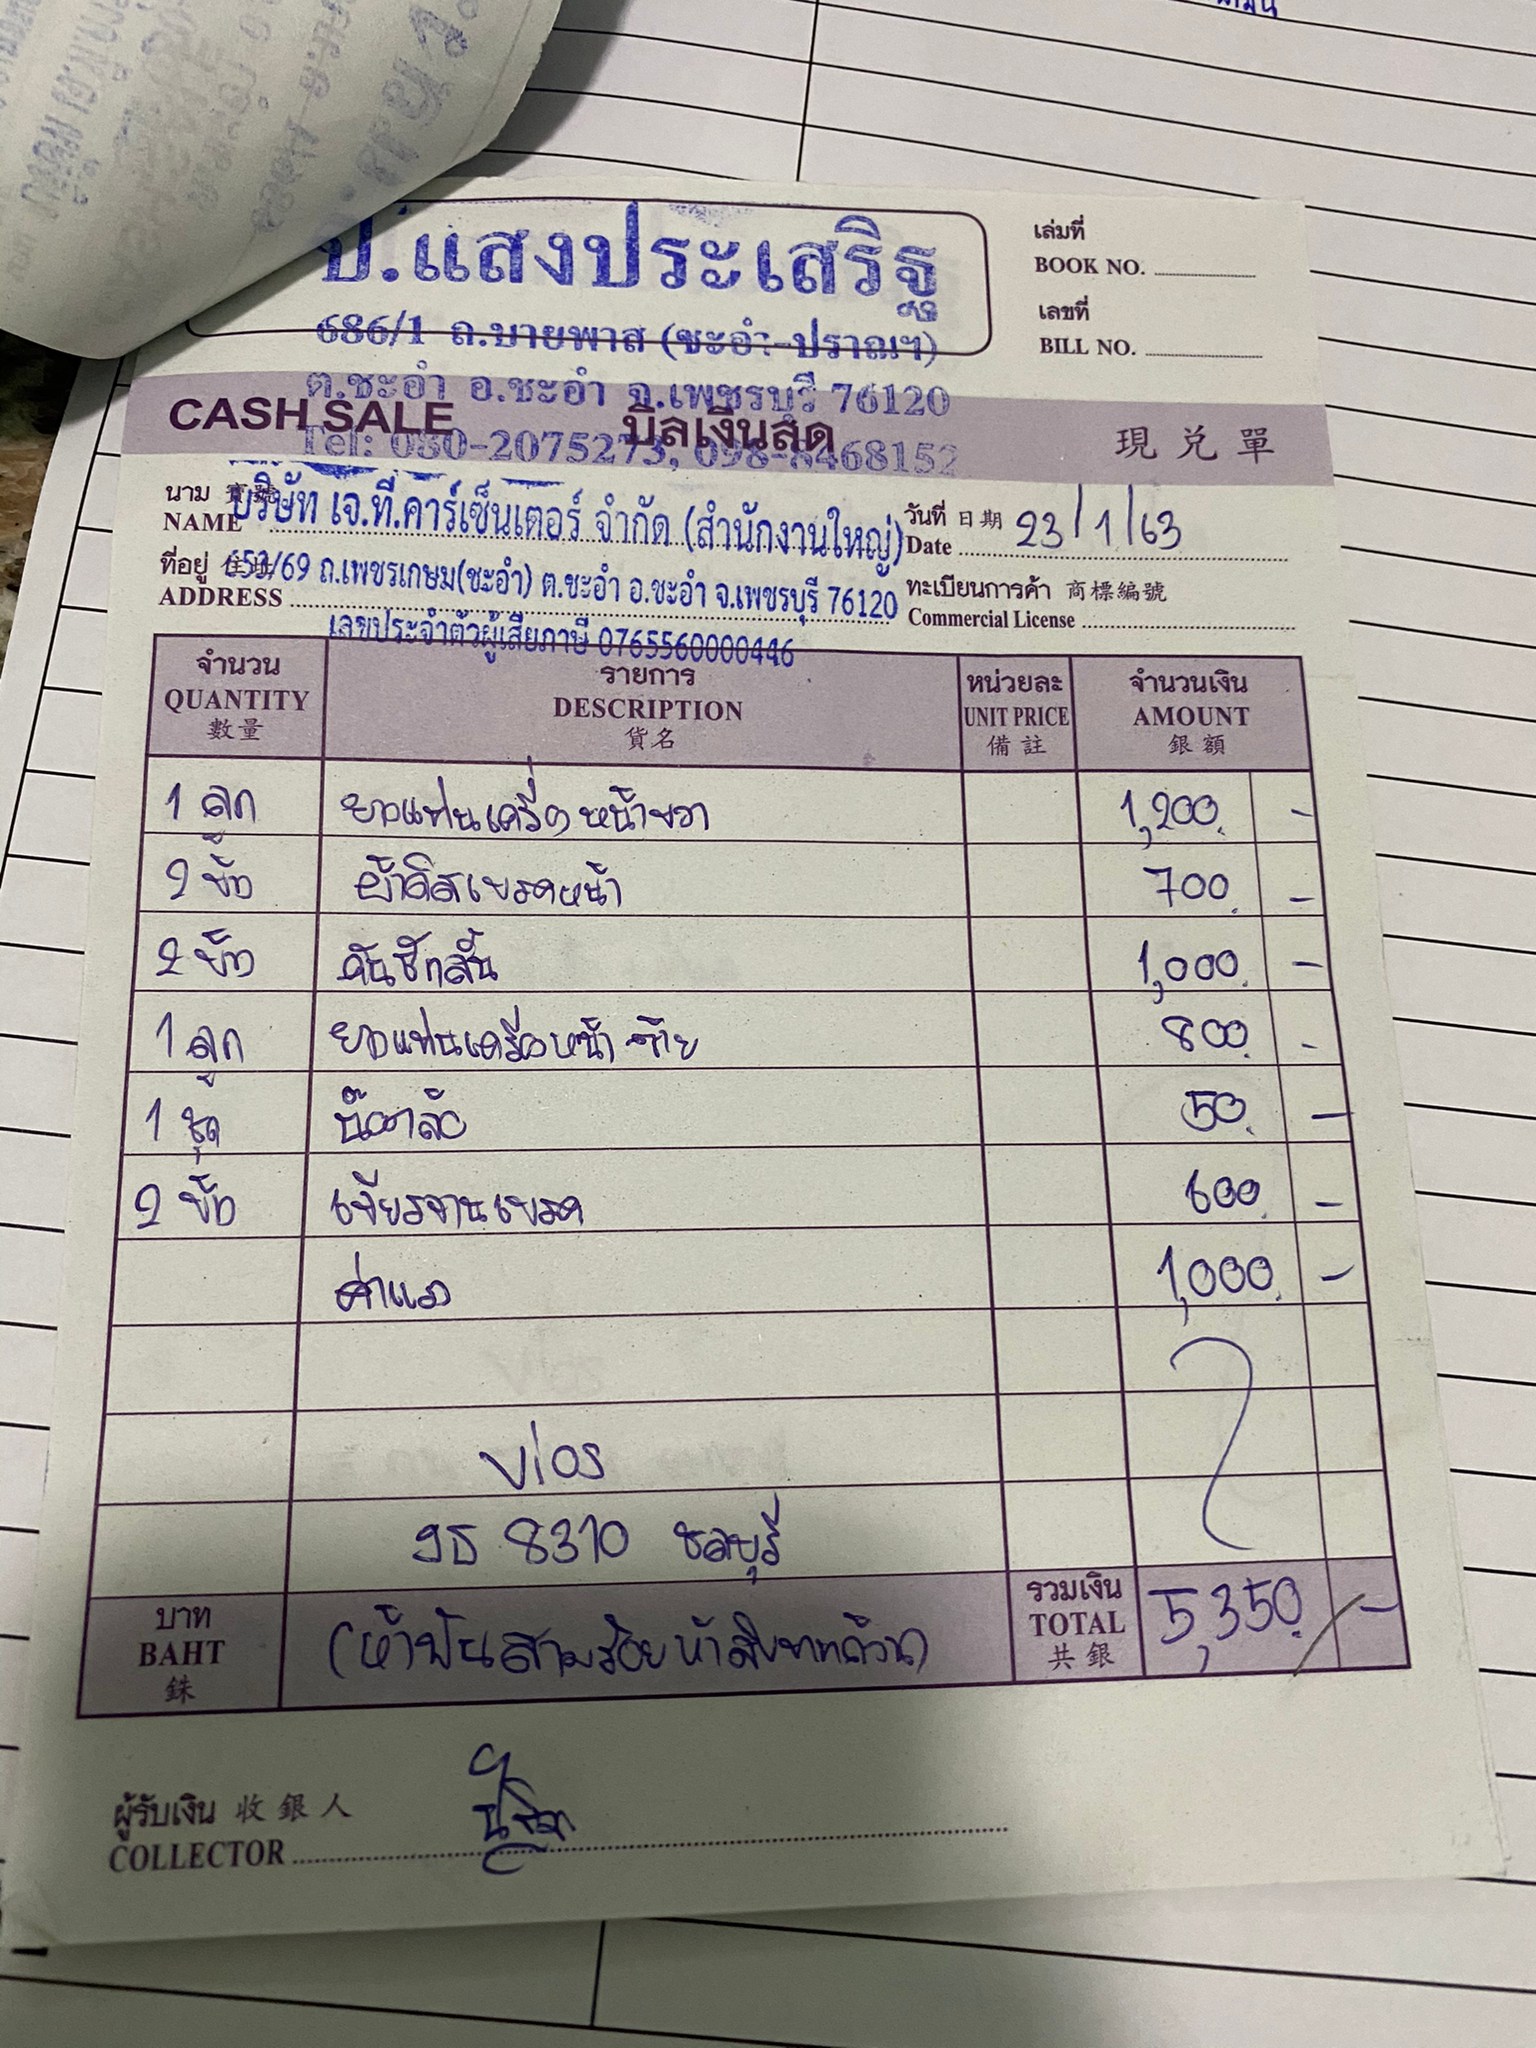 ป.แสงประเสริฐ
686/1 ถ.บายพาส (ชะอำ-ปราณฯ)
ต.ชะอำ อ.ชะอำ จ.เพชรบุรี 76120
Tel: 080-2075273, 098-8468152
เล่มที่
BOOK NO.
เลขที่
BILL NO.
CASH SALE บิลเงินสด 現兌單
นาม 寶號 บริษัท เจ.ที.คาร์เซ็นเตอร์ จำกัด (สำนักงานใหญ่)
NAME
วันที่ 日期 23/1/63
Date
ที่อยู่ 住址 653/69 ถ.เพชรเกษม(ชะอำ) ต.ชะอำ อ.ชะอำ จ.เพชรบุรี 76120
ADDRESS
ทะเบียนการค้า 商標編號
Commercial License
เลขประจำตัวผู้เสียภาษี 0765560000446
จำนวน รายการ หน่วยละ จำนวนเงิน
QUANTITY DESCRIPTION UNIT PRICE AMOUNT
數量 貨名 備註 銀額
1 ลูก ยางแท่นเครื่องหน้าขวา 1,200 -
2 ข้าง ผ้าดิสเบรคหน้า 700 -
2 ข้าง คันชักสั้น 1,000 -
1 ลูก ยางแท่นเครื่องหน้าซ้าย 800 -
1 ชุด น๊อตล้อ 50 -
2 ข้าง เจียรจานเบรค 600 -
ค่าแรง 1,000 -
Vios
8310 ชลบุรี
บาท (ห้าพันสามร้อยห้าสิบบาทถ้วน) รวมเงิน 5,350 -
BAHT TOTAL
銖 共銀
ผู้รับเงิน 收銀人
COLLECTOR